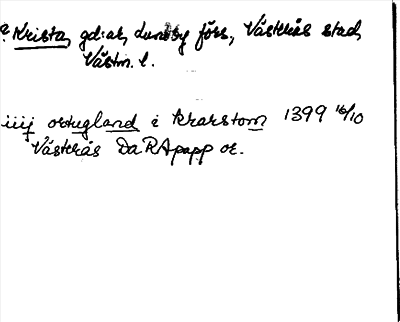 ? Krista, gd:ar, Lundby förs, Västerås stad,
Västm. l.
iiij ortugland i krarstom 1399 16/10
Västerås Da RApapp or.